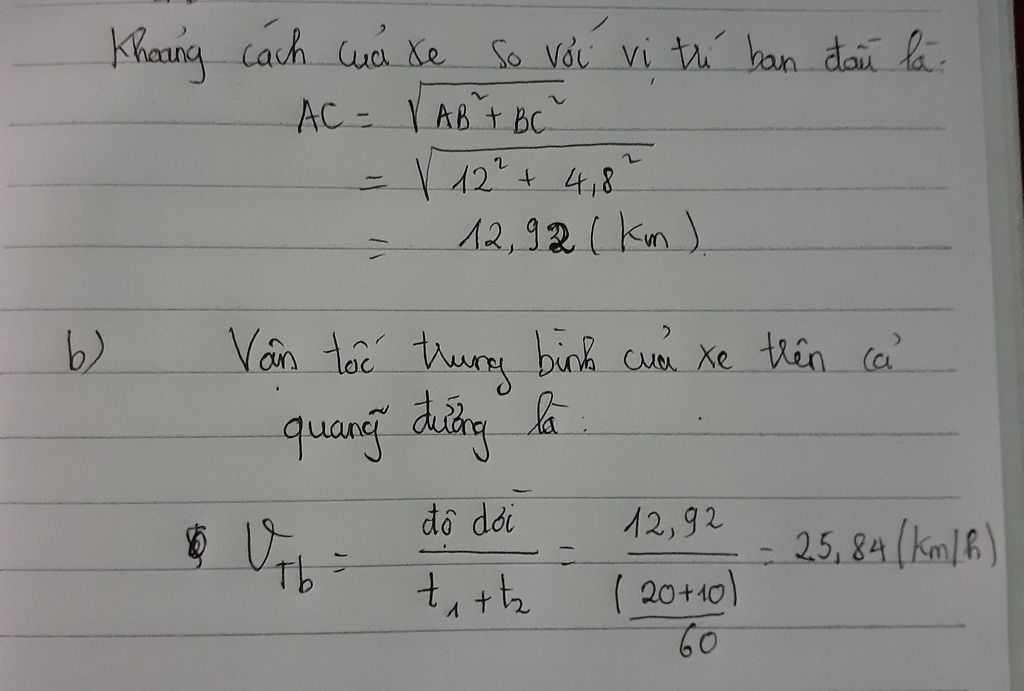 Khoảng cách của xe so với vị trí ban đầu là:
AC = √(AB² + BC²)
= √(12² + 4,8²)
= 12,92 (km).
b) Vận tốc trung bình của xe trên cả
quãng đường là:
V_Tb = độ dời / (t₁ + t₂) = 12,92 / ((20+10)/60) = 25,84 (km/h)